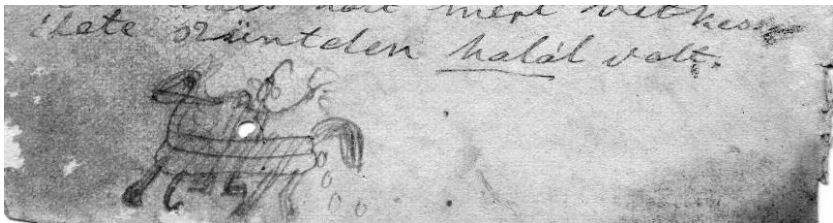 volt mert vétkes
élete szüntelen halál volt.